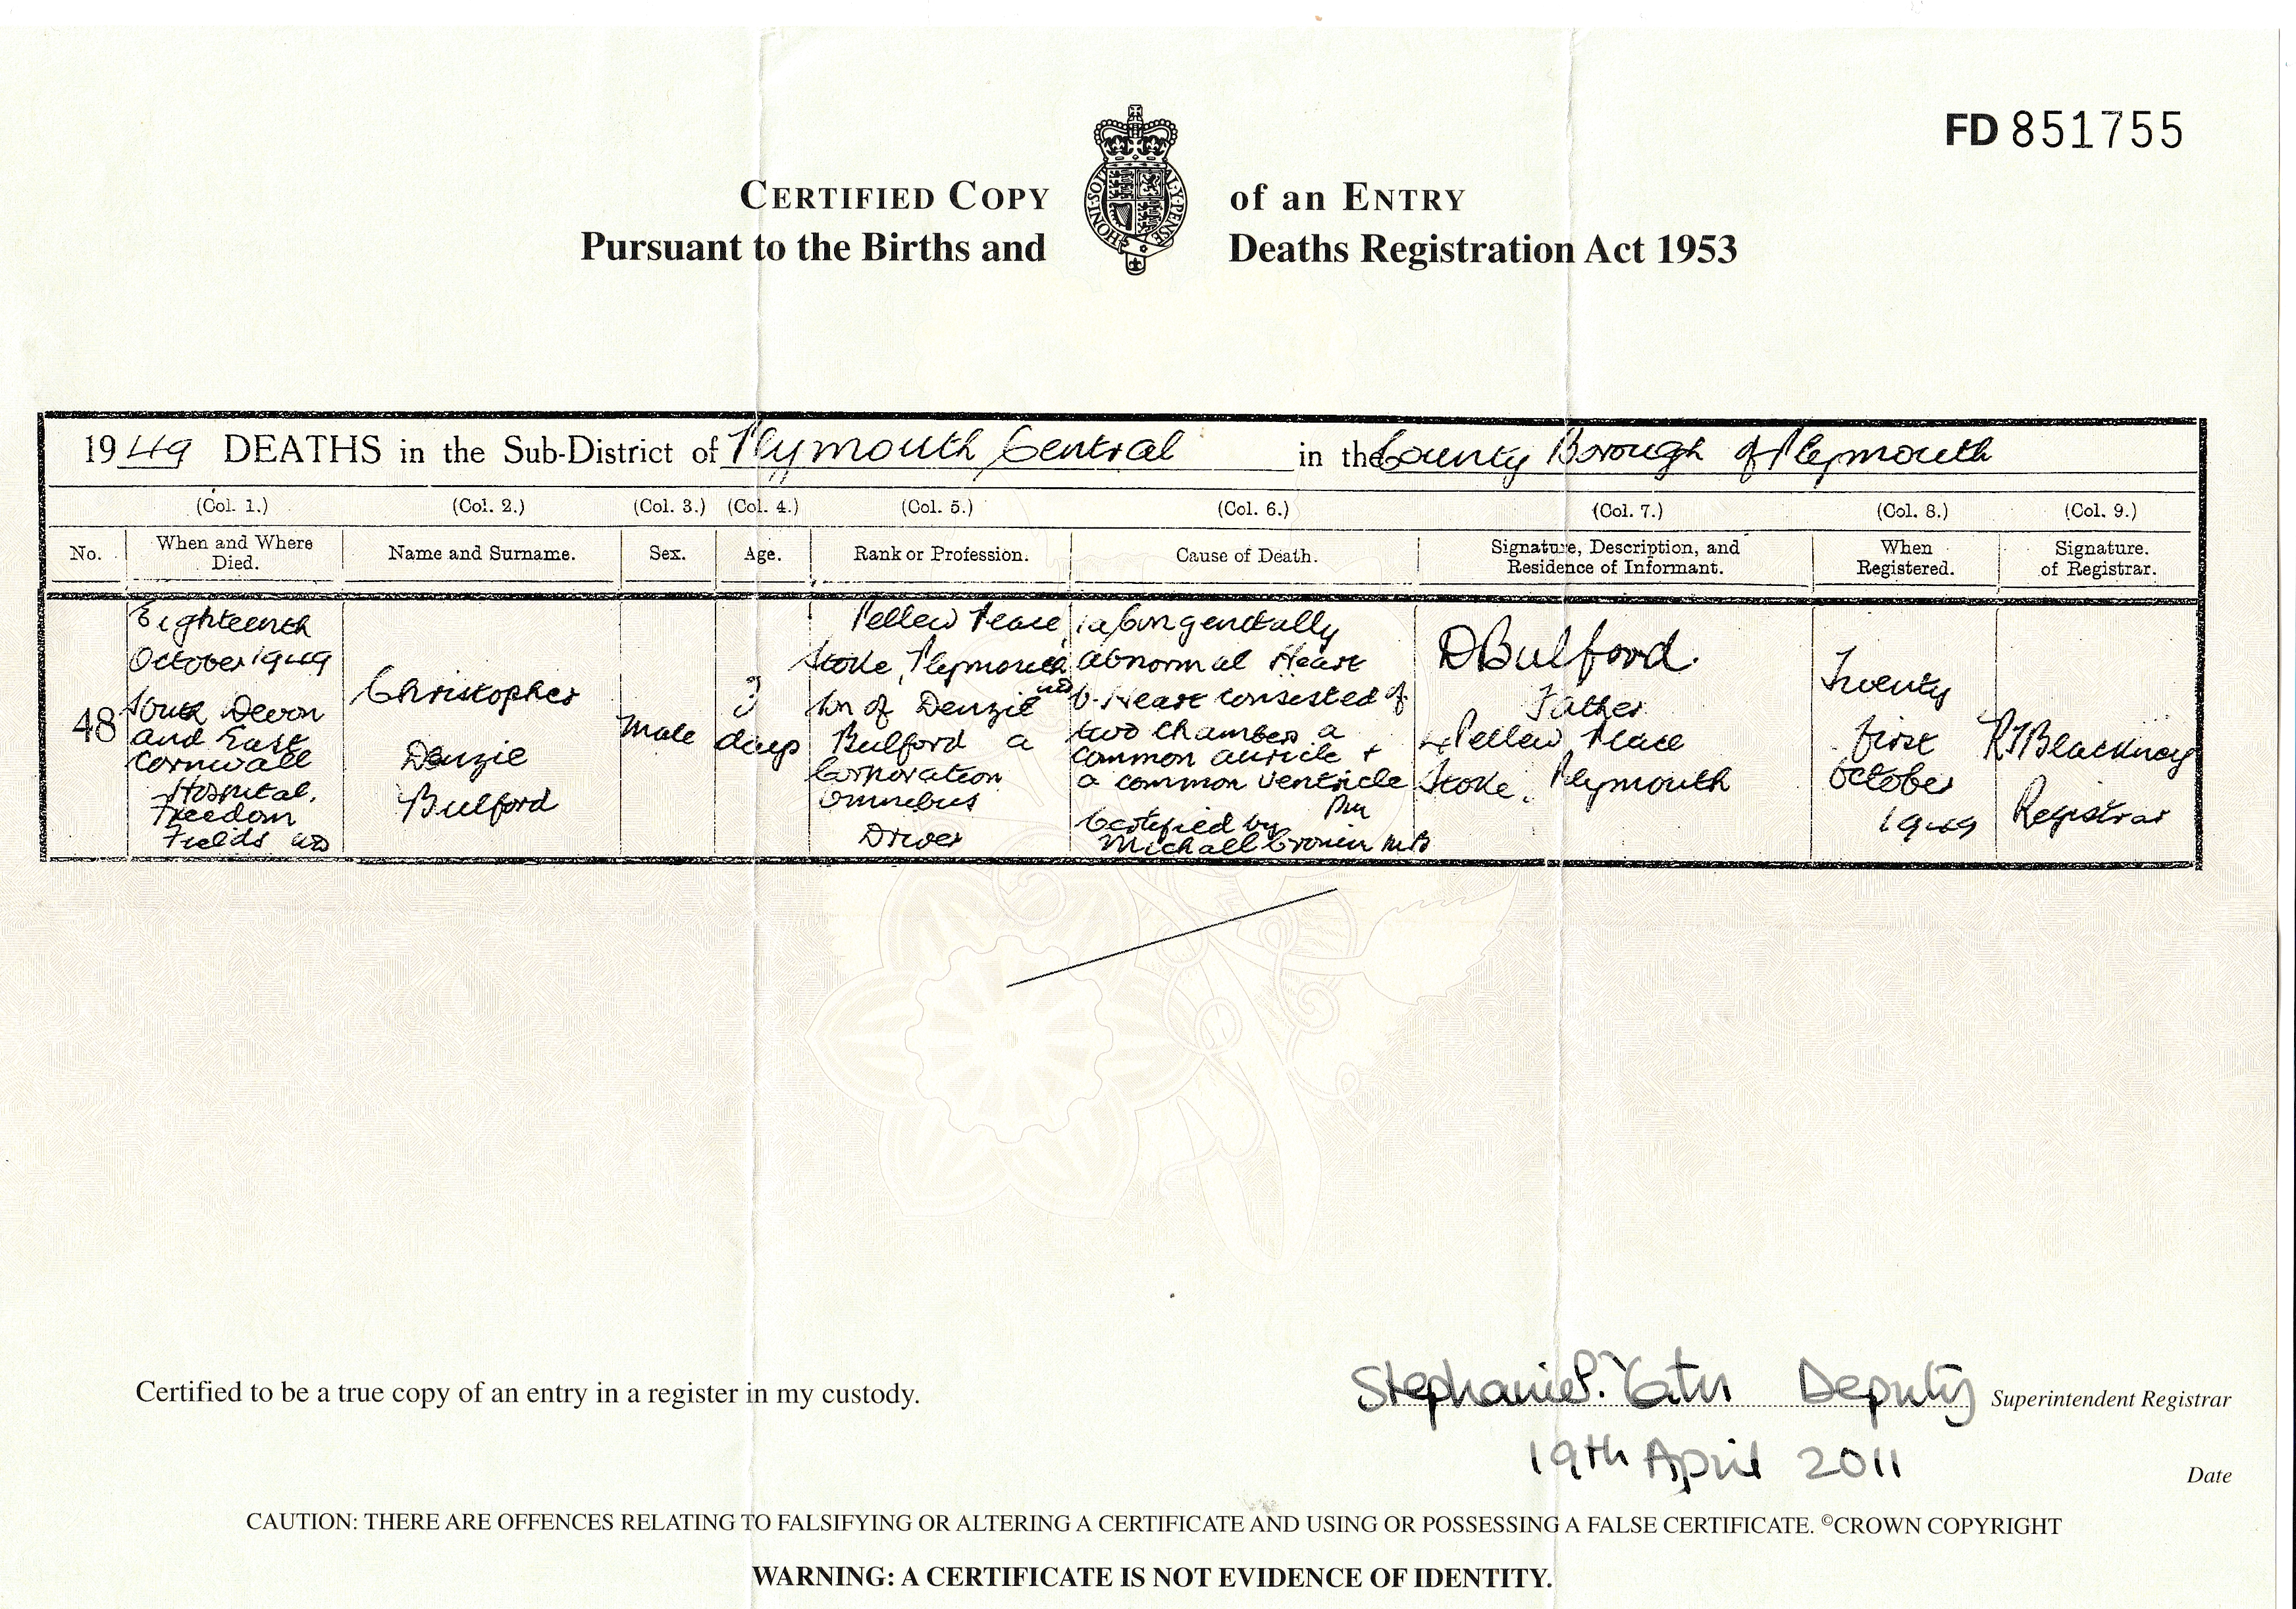 FD 851755
CERTIFIED COPY of an ENTRY
Pursuant to the Births and Deaths Registration Act 1953
HONI·SOI AL·Y·PENSE
1949 DEATHS in the Sub-District of Plymouth Central in the County Borough of Plymouth
(Col. 1.) (Col. 2.) (Col. 3.) (Col. 4.) (Col. 5.) (Col. 6.) (Col. 7.) (Col. 8.) (Col. 9.)
No. When and Where Died. Name and Surname. Sex. Age. Rank or Profession. Cause of Death. Signature, Description, and Residence of Informant. When Registered. Signature. of Registrar.
48
Eighteenth
October 1949
South Devon
and East
Cornwall
Hospital,
Freedom
Fields UD
Christopher
Denzie
Bulford
Male
3
days
Pellew Place
Stoke, Plymouth
UD
Son of Denzie
Bulford a
Corporation
Omnibus
Driver
1a Congenitally
abnormal Heart
b. Heart consisted of
two chambers a
common auricle +
a common ventricle
PM
Certified by
Michall Cronin MB
D Bulford.
Father
4 Pellew Place
Stoke, Plymouth
Twenty
first
October
1949
R J Blackney
Registrar
Certified to be a true copy of an entry in a register in my custody.
Stephanie P. Yates Deputy Superintendent Registrar
19th April 2011 Date
CAUTION: THERE ARE OFFENCES RELATING TO FALSIFYING OR ALTERING A CERTIFICATE AND USING OR POSSESSING A FALSE CERTIFICATE. ©CROWN COPYRIGHT
WARNING: A CERTIFICATE IS NOT EVIDENCE OF IDENTITY.